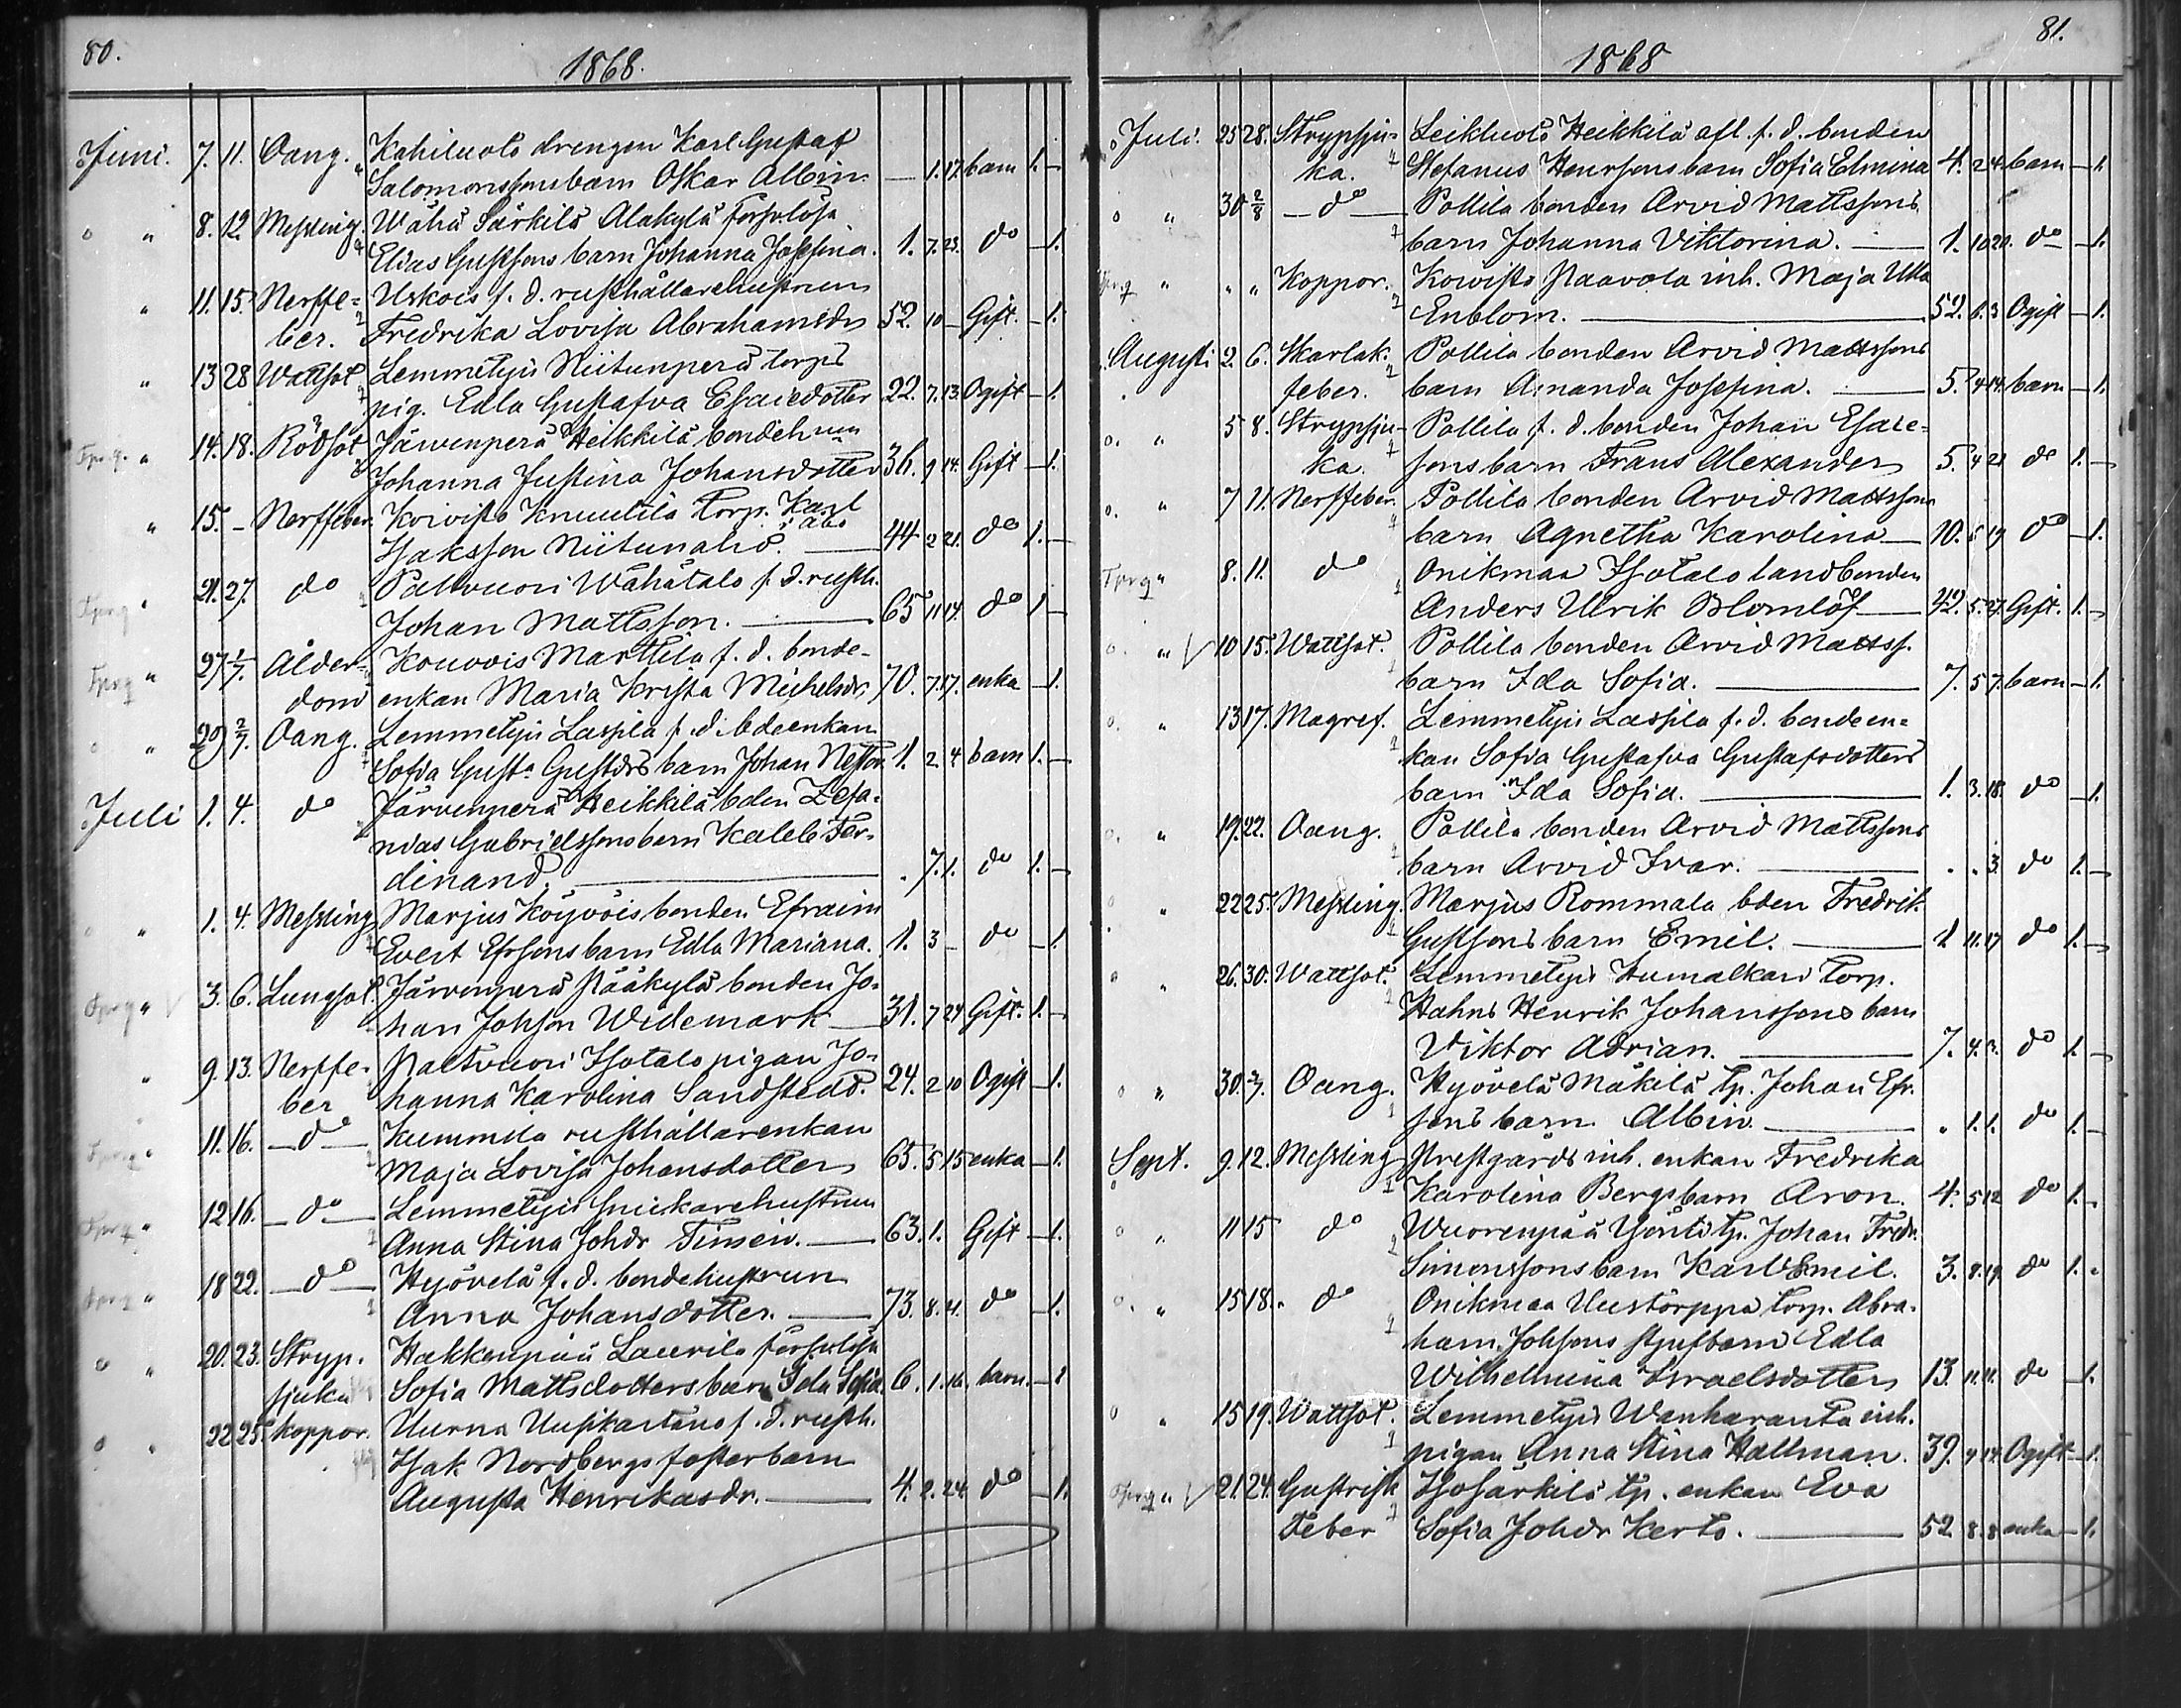 80.
1868.
Juni. 7. 11. Oang. Kahiluoto drengen Karl Gustaf
Salomonssons barn Oskar Albin. — 1. 17. barn 1. —
" 8. 12. Messling. Wähä Särkilä Alakylä
Elias Gustfsons barn Johanna Josefina. 1. 7. 23. do — 1.
" 11. 15. Nerffe- Uskois f. d. rusthållarehustrun
ber. Fredrika Lovisa Abrahamsdr 52. 10 — Gift. — 1.
" 13 28 Wattsot Lemmetyis Niitunperä torps
pig. Edla Gustafva Esaiedotter 22. 7. 13. Ogift — 1.
" 14. 18. Rödsot Järvenperä Heikkilä bondehrun
Johanna Justina Johansdotter 36. 9 14. Gift — 1.
" 15. — Nerffeber. Koivisto Knuutila torp. Karl
Isaksson Niitunaho. — 44 2 21. do 1. —
" 21. 27. do Paltvuori Wähätalo f. d. rusth.
Johan Mattsson. — 65 11 14. do 1 —
" 27 1/7. Ålder- Kouvois Marttila f. d. bonde-
dom enkan Maria Krista Michelsdr 70. 7. 17. enka — 1.
" 29 2/7. Oang. Lemmetyis Lassila f. d. bdeenkan
Sofia Gusta Gustdrs barn Johan Nestor 1. 2 4 barn 1. —
Juli 1. 4. do Järvenperä Heikkilä bden Zefa-
nias Gabrielssons barn Kaleb Fer-
dinand. — . 7. 1. do 1. —
" 1. 4. Messling Marjus Köyvöis bonden Efraim
Evert Efrsons barn Edla Mariana. 1. 3 — do — 1
" 3. 6. Lungsot. Järvenperä Pääkylä bonden Jo-
han Johsson Widemark — 31. 7 24 Gift. 1. —
" 9. 13. Nerffe- Paltvuori Isotalo pigan Jo-
ber hanna Karolina Sandstedt. 24. 2 10 Ogift — 1.
11. 16. — do — Kummila rusthållarenkan
Maja Lovisa Johansdotter 65. 5 15 enka — 1.
" 12 16. — do — Lemmetyis Snickarehustrun
Anna Stina Johdr — 63. 1. Gift — 1.
" 18 22. — do — Hyövelä f. d. bondehustrun
Anna Johansdotter. — 73. 8. 21. do — 1.
" 20. 23. Stryp- Hakkenpää Laurila
sjuka Sofia Mattsdotters barn Ida Sofia 6. 1. 16. barn. — 1
" 22 25. Koppor. Uurna f. d. rusth.
Isak Nordbergs fosterbarn
Augusta Henrikasdr. — 4. 2. 24 do — 1.
81.
1868
Juli. 25 28. Strypsju- Leikluoto Heikkilä afl. f. d. bonden
ka. Stefanus Henrsons barn Sofia Elmina 4. 24. barn — 1.
" 30 2/8 — do — Pollila bonden Arvid Mattssons
barn Johanna Viktorina. — 1. 10 20. do — 1.
" " " Koppor. Koivisto Paavola inh. Maja Ulla
Enblom. — 52. 6. 3 Ogift — 1.
Augusti 2. 6. Skarlak. Pollila bonden Arvid Mattssons
feber. barn Amanda Josefina. — 5. 4 14. barn — 1.
" 5 8. Strypsju- Pollila f. d. bonden Johan Esaie-
ka. sons barn Frans Alexander 5. 4 21 do 1. —
" 7 11. Nerffeber. Pollila bonden Arvid Mattssons
barn Agnetha Karolina — 10. 5 19 do — 1.
" 8. 11. do Onikmaa Isotalo landbonden
Anders Ulrik Blomlöf — 42. 5. 27. Gift. 1. —
" 10 15. Wattsot. Pollila bonden Arvid Mattss.
barn Ida Sofia. — 7. 5 7. barn — 1.
" 13 17. Magref. Lemmetyis Lassila f. d. bondeen-
kan Sofia Gustafva Gustafsdotters
barn Ida Sofia. — 1. 3. 18. do — 1.
" 19. 22. Oang. Pollila bonden Arvid Mattssons
barn Arvid Ivar. — . . 3. do 1. —
" 22 25. Messling. Marjus Rommala bden Fredrik
Gustfsons barn Emil. — 1 11. 17 do 1. —
" 26. 30. Wattsot. Lemmetyis Humalkari torp.
Hahns Henrik Johanssons barn
Viktor Adrian. — 7. 4. 3. do 1. —
" 30. Oang. Hyövelä Mäkilä tp. Johan Efr.
sons barn Albin. — . 1. 1. do 1. —
Sept. 9. 12. Messling Prestgårds inh. enkan Fredrika
Karolina Bergs barn Aron. 4. 5 12 do 1. —
" 11 15 do Wuorenpää tp. Johan Fredr.
Simonssons barn Karl Emil. 3. 8. 19. do 1. "
" 15 18. do Onikmaa Uustorppa torp. Abra-
ham Johssons styfbarn Edla
Wilhelmina Israelsdotter 13. 11. 11. do — 1.
" 15 19. Wattsot. Lemmetyis Wanharanta inh.
pigan Anna Stina Hallman. 39. 9 14. Ogift — 1.
" 21. 24. Gastrisk Isosärkilä tp. enkan Eva
Feber Sofia Johdr Kerto. — 52 8. 8 enka — 1.